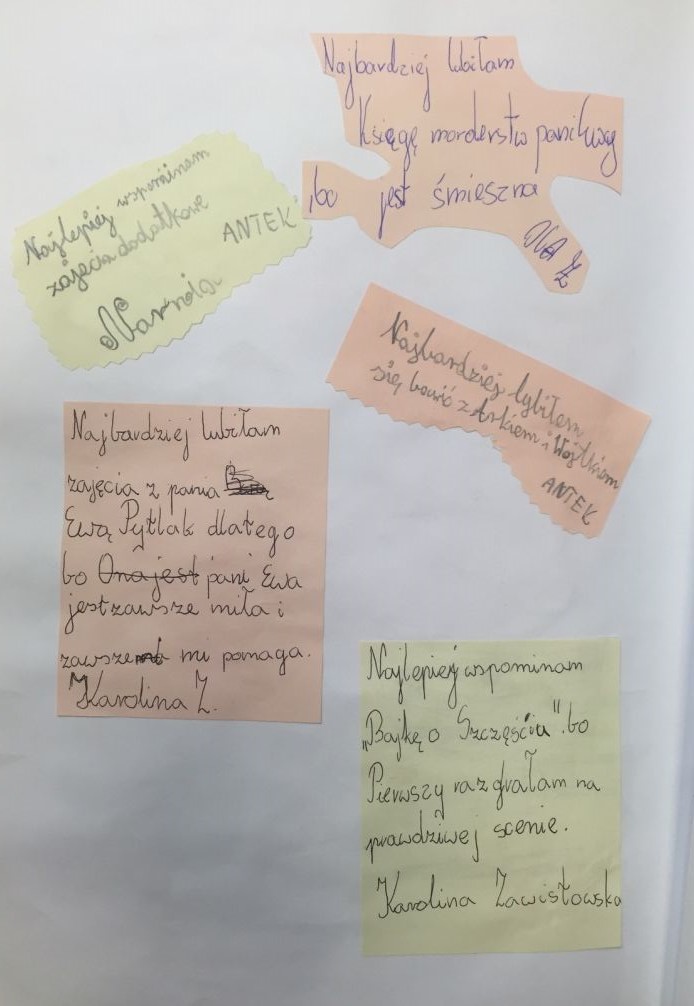 Najbardziej lubiłam
Księgę morderstw pani Ewy
,bo jest śmieszna
OLA Ż
Najlepiej wspominam
zajęcia dodatkowe
ANTEK
Narnia
Najbardziej lybiłem
się bawić z Arkiem i Wojtkiem
ANTEK
Najbardziej lubiłam
zajęcia z pania
Ewą Pytlak dlatego
bo Ona jest pani Ewa
jest zawsze miła i
zawsze mi pomaga.
Karolina Z.
Najlepiej wspominam
„Bajkę o Szczęściu". bo
Pierwszy raz grałam na
prawdziwej scenie.
Karolina Zawistowska